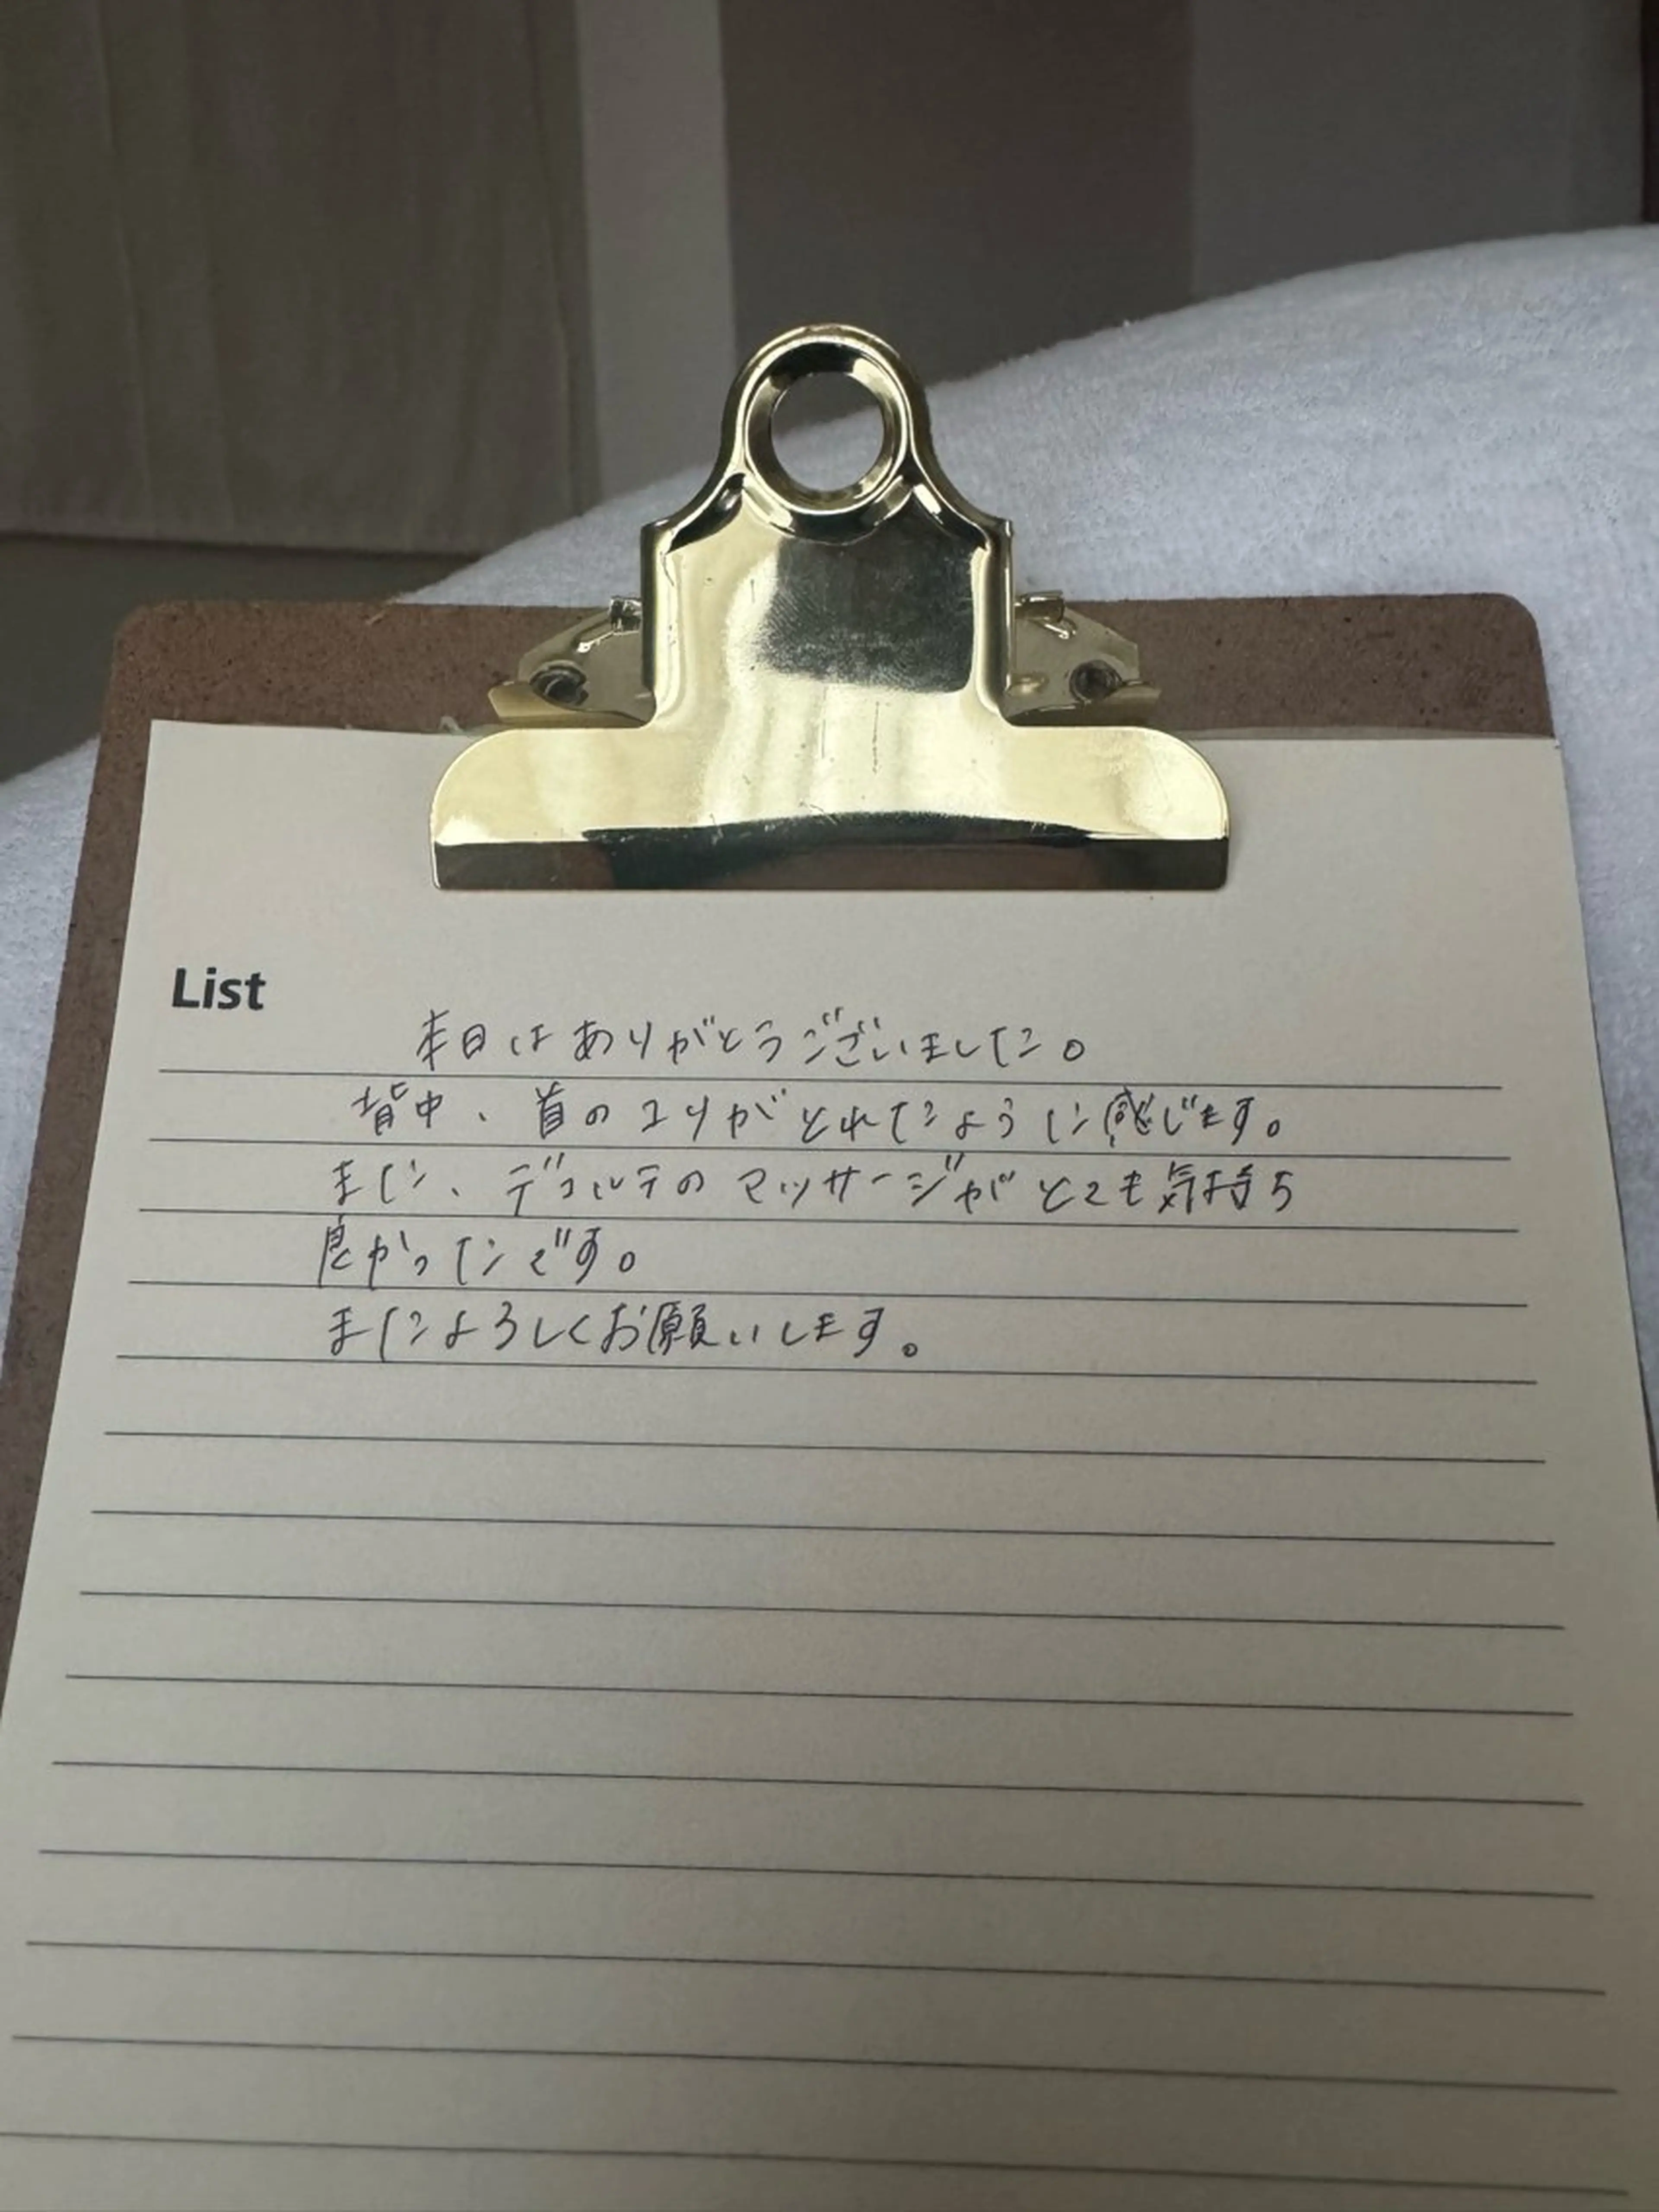 List
本日はありがとうございました。
背中、首のコリがとれたように感じます。
また、デコルテのマッサージがとても気持ち
良かったです。
またよろしくお願いします。